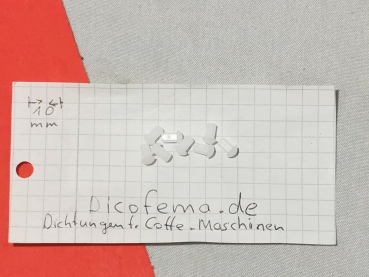 10
mm
Dicofema.de
Dichtungen f. Coffe-Maschinen